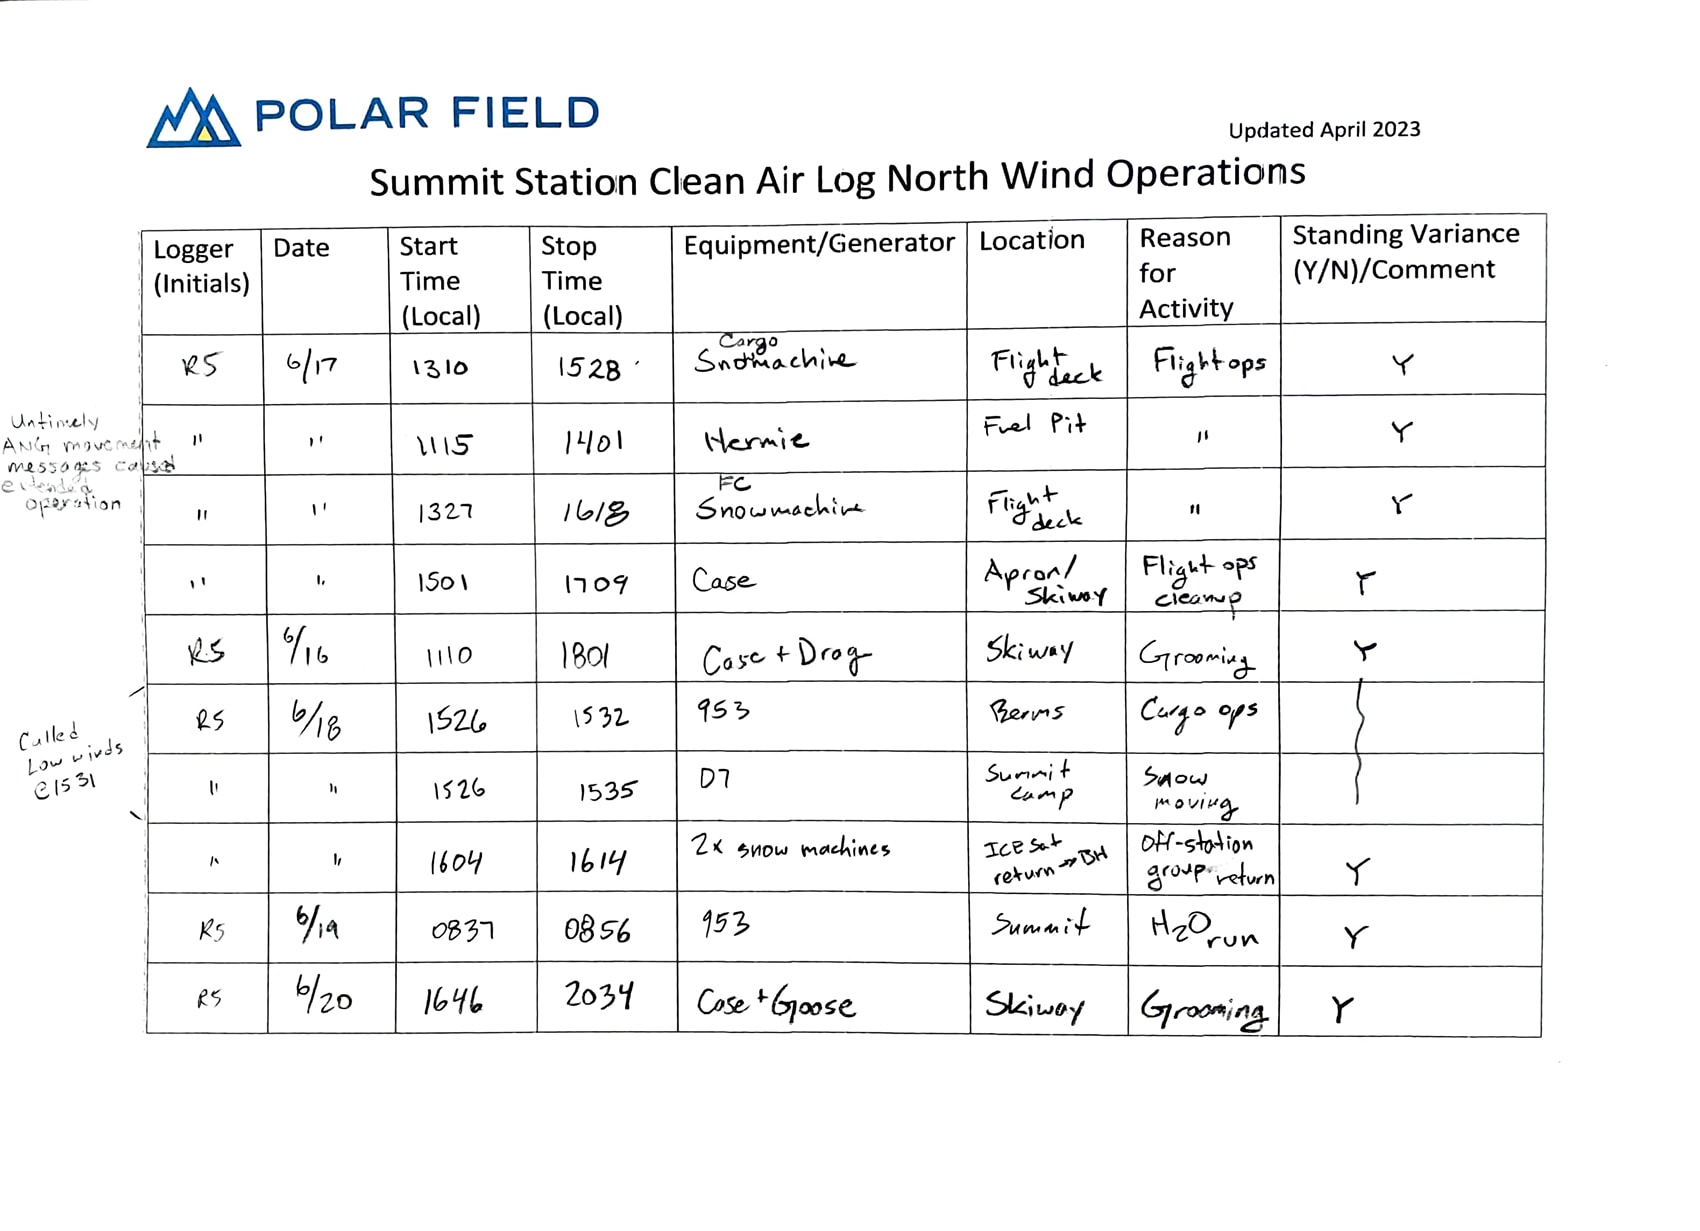 POLAR FIELD
Updated April 2023
Summit Station Clean Air Log North Wind Operations
Logger (Initials) Date Start Time (Local) Stop Time (Local) Equipment/Generator Location Reason for Activity Standing Variance (Y/N)/Comment
RS 6/17 1310 1528 Cargo Snowmachine Flight deck Flight ops Y
Untimely ANG movement messages caused extended operation
" " 1115 1401 Hermie Fuel Pit " Y
" " 1327 1618 FC Snowmachine Flight deck " Y
" " 1501 1709 Case Apron/ Skiway Flight ops cleanup Y
RS 6/16 1110 1801 Case + Drag Skiway Grooming Y
Called Low winds @1531
RS 6/18 1526 1532 953 Berms Cargo ops
" " 1526 1535 D7 Summit camp Snow moving
" " 1604 1614 2x snow machines ICESat return → BH Off-station group return Y
RS 6/19 0837 0856 953 Summit H2O run Y
RS 6/20 1646 2034 Case + Goose Skiway Grooming Y